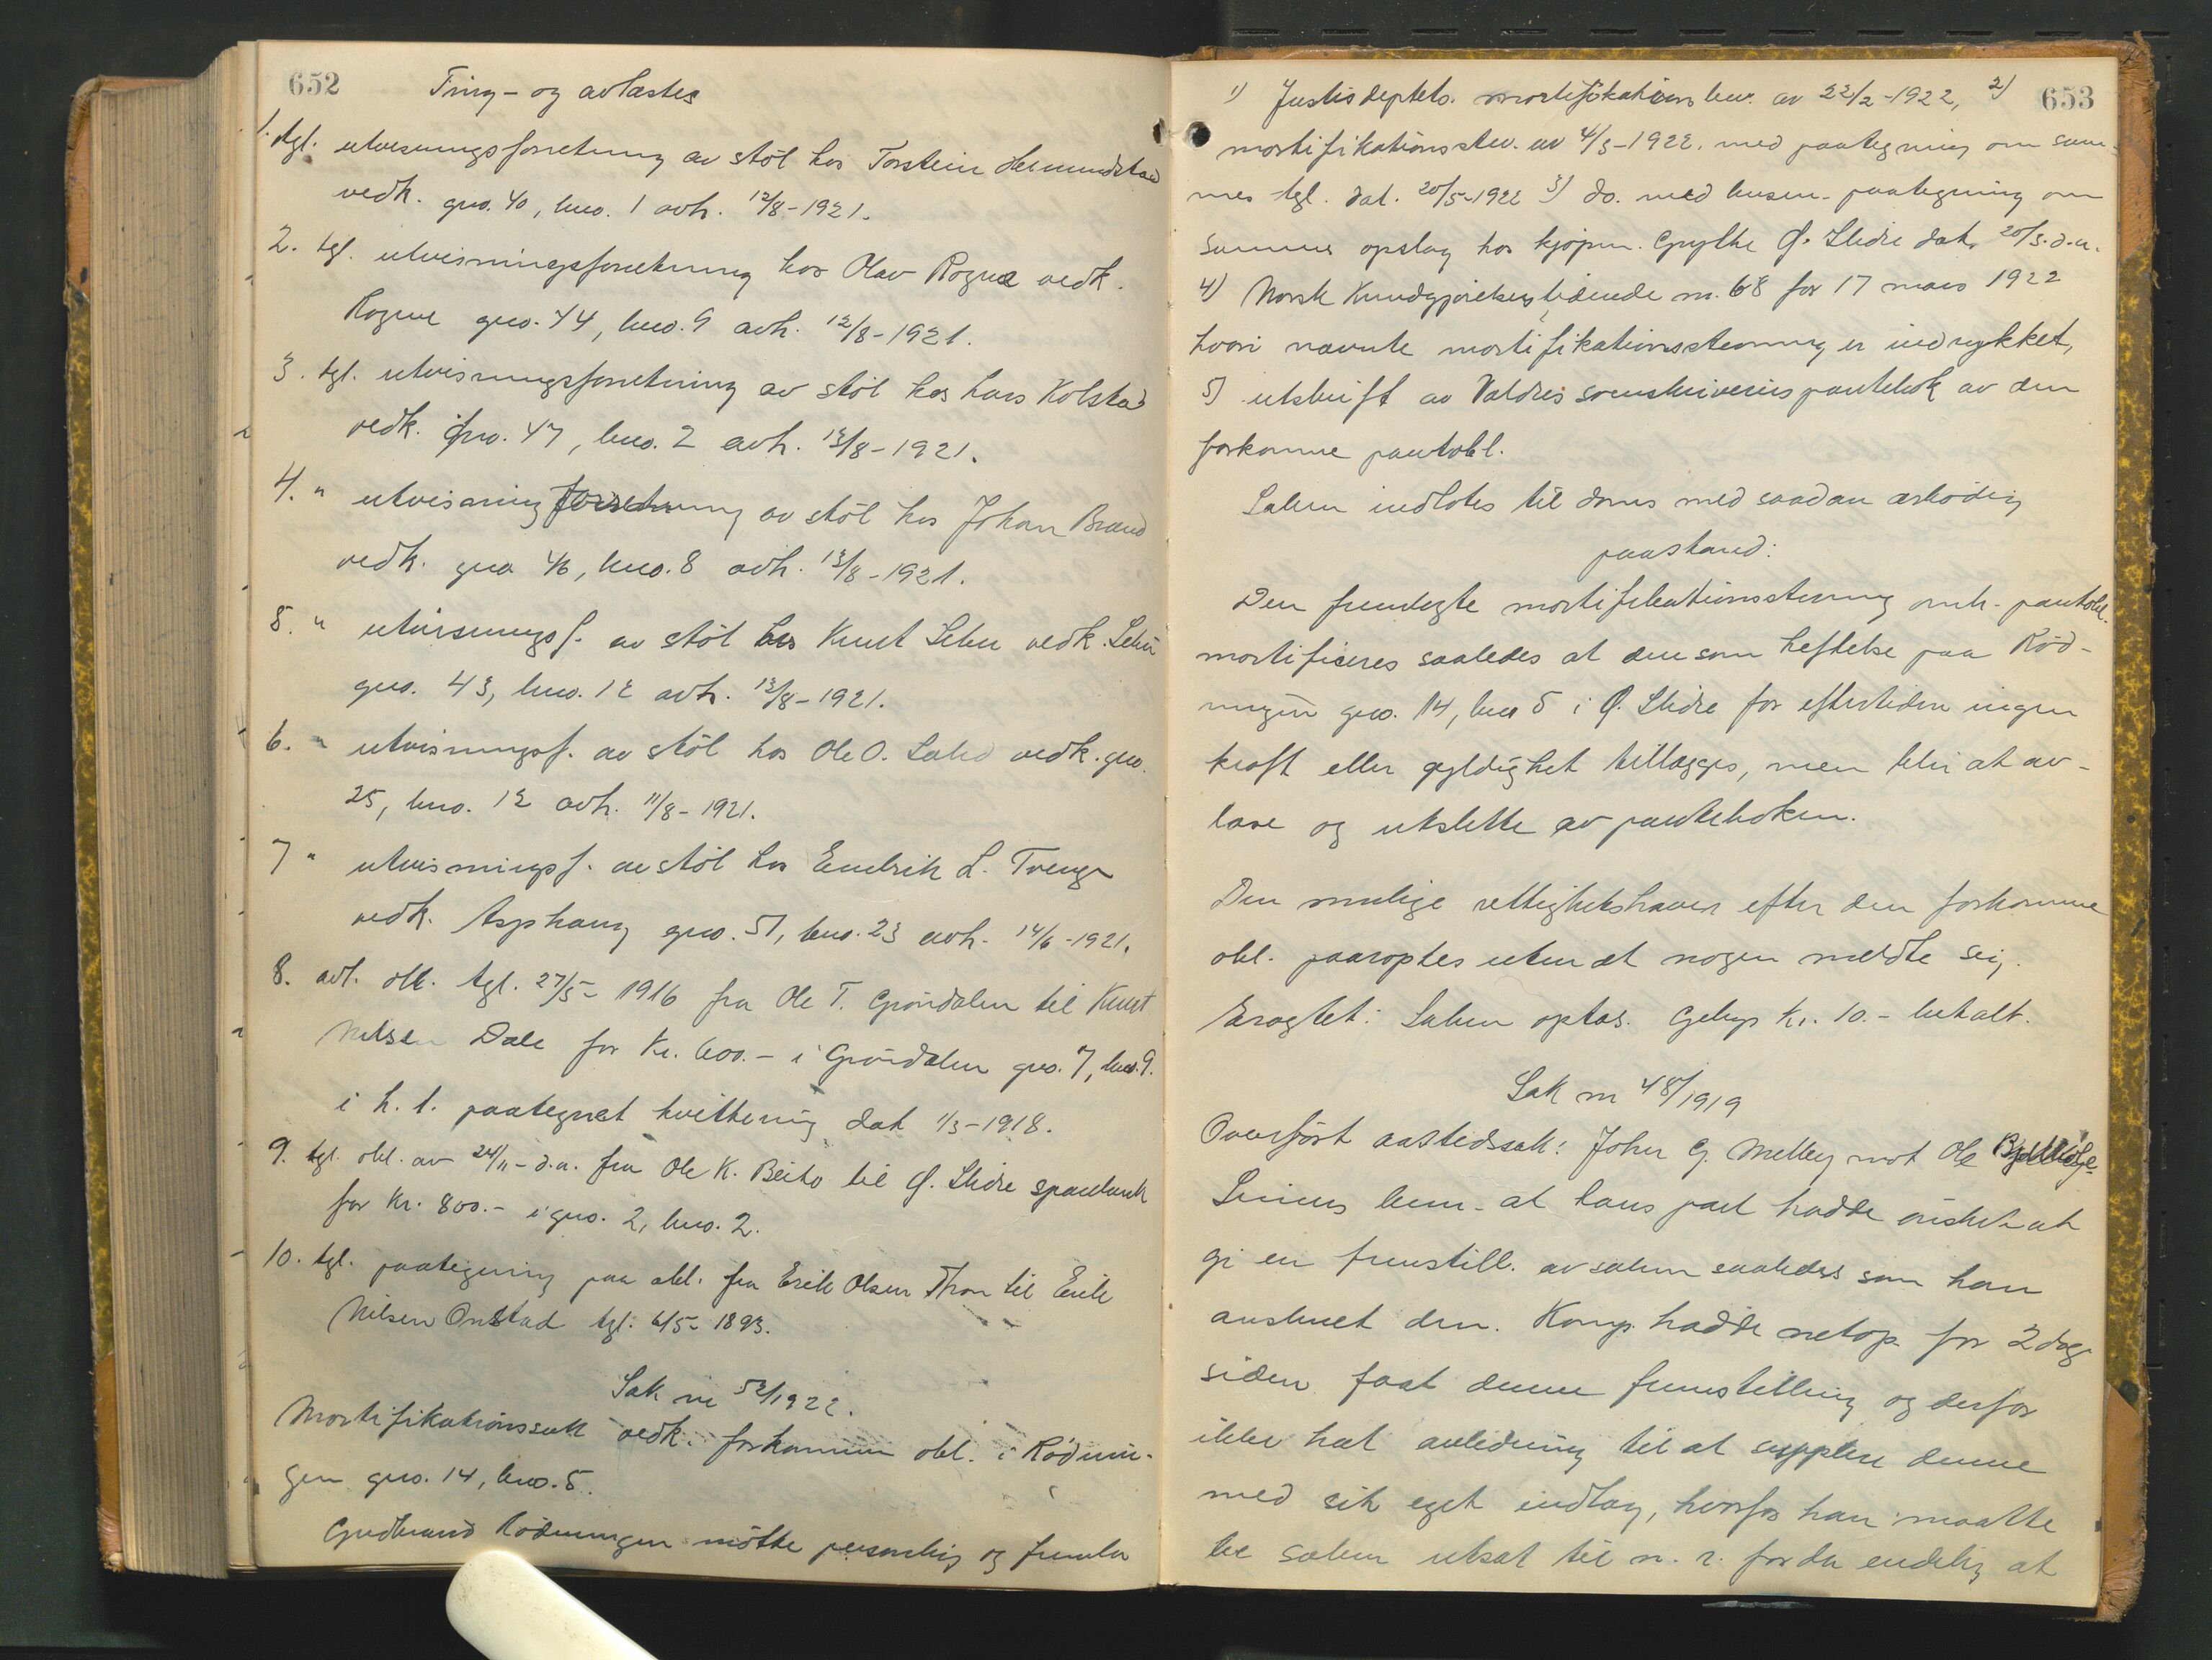 652
Ting- og avlæstes
1. tgl. utvisningsforretning av støl hos Torstein Hermundstad
vedk. gno. 40, bno. 1 avh. 12/8-1921.
2. tgl. utvisningsforretning hos Olav Rogne vedk.
Rogne gno. 44, bno. 9 avh. 12/8-1921.
3. tgl. utvisningsforretning av støl hos Lars Kolstad
vedk. gno. 47, bno. 2 avh. 13/8-1921.
4. " utvisning forretning av støl hos Johan Brand
vedk. gno 46, bno. 8 avh. 13/8-1921.
5. " utvisningsf. av støl hos Knut Lehn vedk. Lehn
gno. 43, bno. 12 avh. 13/8-1921.
6. " utvisningsf. av støl hos Ole O. vedk. gno.
25, bno. 12 avh. 11/8-1921.
7 " utvisningsf. av støl hos Endrik L. Trenge
vedk. Asphaug gno. 51, bno. 23 avh. 14/6-1921.
8. avl. obl. tgl. 27/5- 1916 fra Ole T. Grøndalen til Knut
Nilsen Dale for Kr. 600.- i Grøndalen gno. 7, bno. 9.
i h. t. paategnet kvittering dat 1/3-1918.
9. tgl. obl. av 24/11- d.a. fra Ole K. Beito til Ø. Slidre sparebank
for Kr. 800.- i gno. 2, bno. 2.
10. tgl. paategning paa obl. fra Erik Olsen Thon til Erik
Nilsen Onstad tgl. 6/5- 1893.
Sak nr 52/1922.
Mortifikationssak vedk. forkommen obl. i Rødnin-
gen gno. 14, bno. 5.
Gudbrand Rødningen møtte personlig og fremla
653
1) Justisdeptets. mortifikationsbev. av 22/2-1922, 2)
mortifikationsstev. av 4/3-1922. med paategning om sam-
mes tgl. dat. 20/5-1922 3) do. med lensm. paategning om
sammes opslag hos kjøpm. Grythe Ø. Slidre dat. 20/3. d.a.
4) Norsk Kundgjørelsestidende nr. 68 for 17 mars 1922
hvori nævnte mortifikationsstevning er indrykket,
5) utskrift av Valdres sorenskriveries pantebok av den
forkomne pantobl.
Saken indlotes til doms med saadan ærbødig
paastand:
Den fremlegte mortifikationsstevning omh. pantobl.
mortificeres saaledes at den som heftelse paa Rød-
ningen gno. 14, bno 5 i Ø. Slidre for eftertiden ingen
kraft eller gyldighet tillægges, men blir at av-
læse og utslette av panteboken.
Den mulige rettighetshaver efter den forkomne
obl. paaroptes uten at nogen meldte sig.
Eragtet: Saken optas. Gebyr kr. 10.- betalt.
Sak nr 48/1919
Overført aastedssak: John G. Melby mot Ole
bem. at hans part hadde ønsket at
gi en fremstill. av saken saaledes som han
anskuet den. Komp. hadde netop for 2 dage
siden faat denne fremstilling og derfor
ikke hat anledning til at supplere denne
med sit eget indlæg, hvorfor han maatte
be saken utsat til n. r. for da endelig at